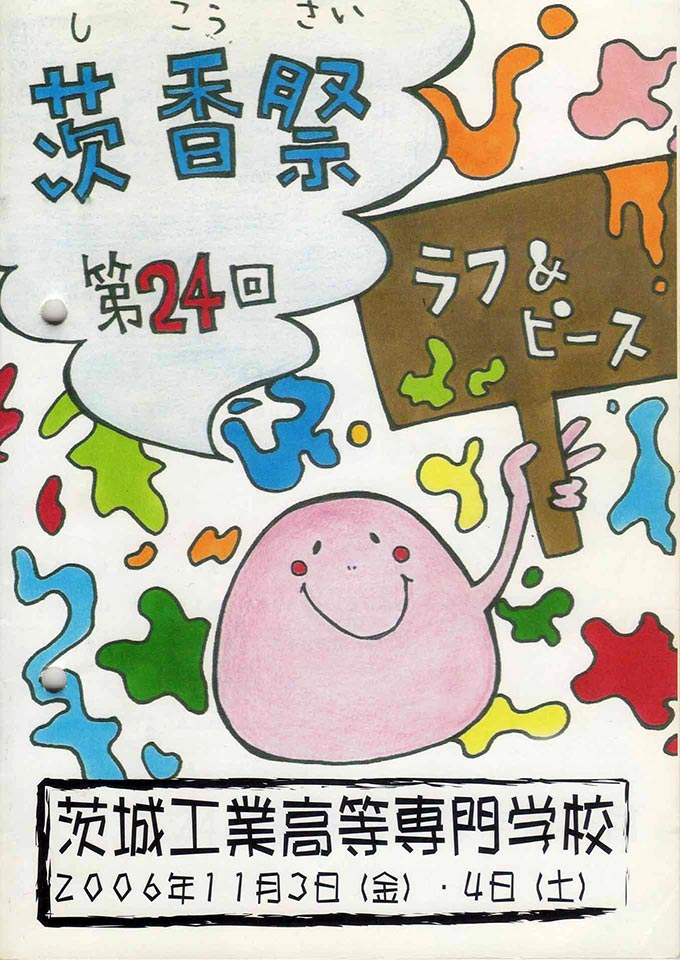 しこうさい
茨香祭
第24回
ラフ&
ピース
茨城工業高等専門学校
2006年11月3日(金)・4日(土)